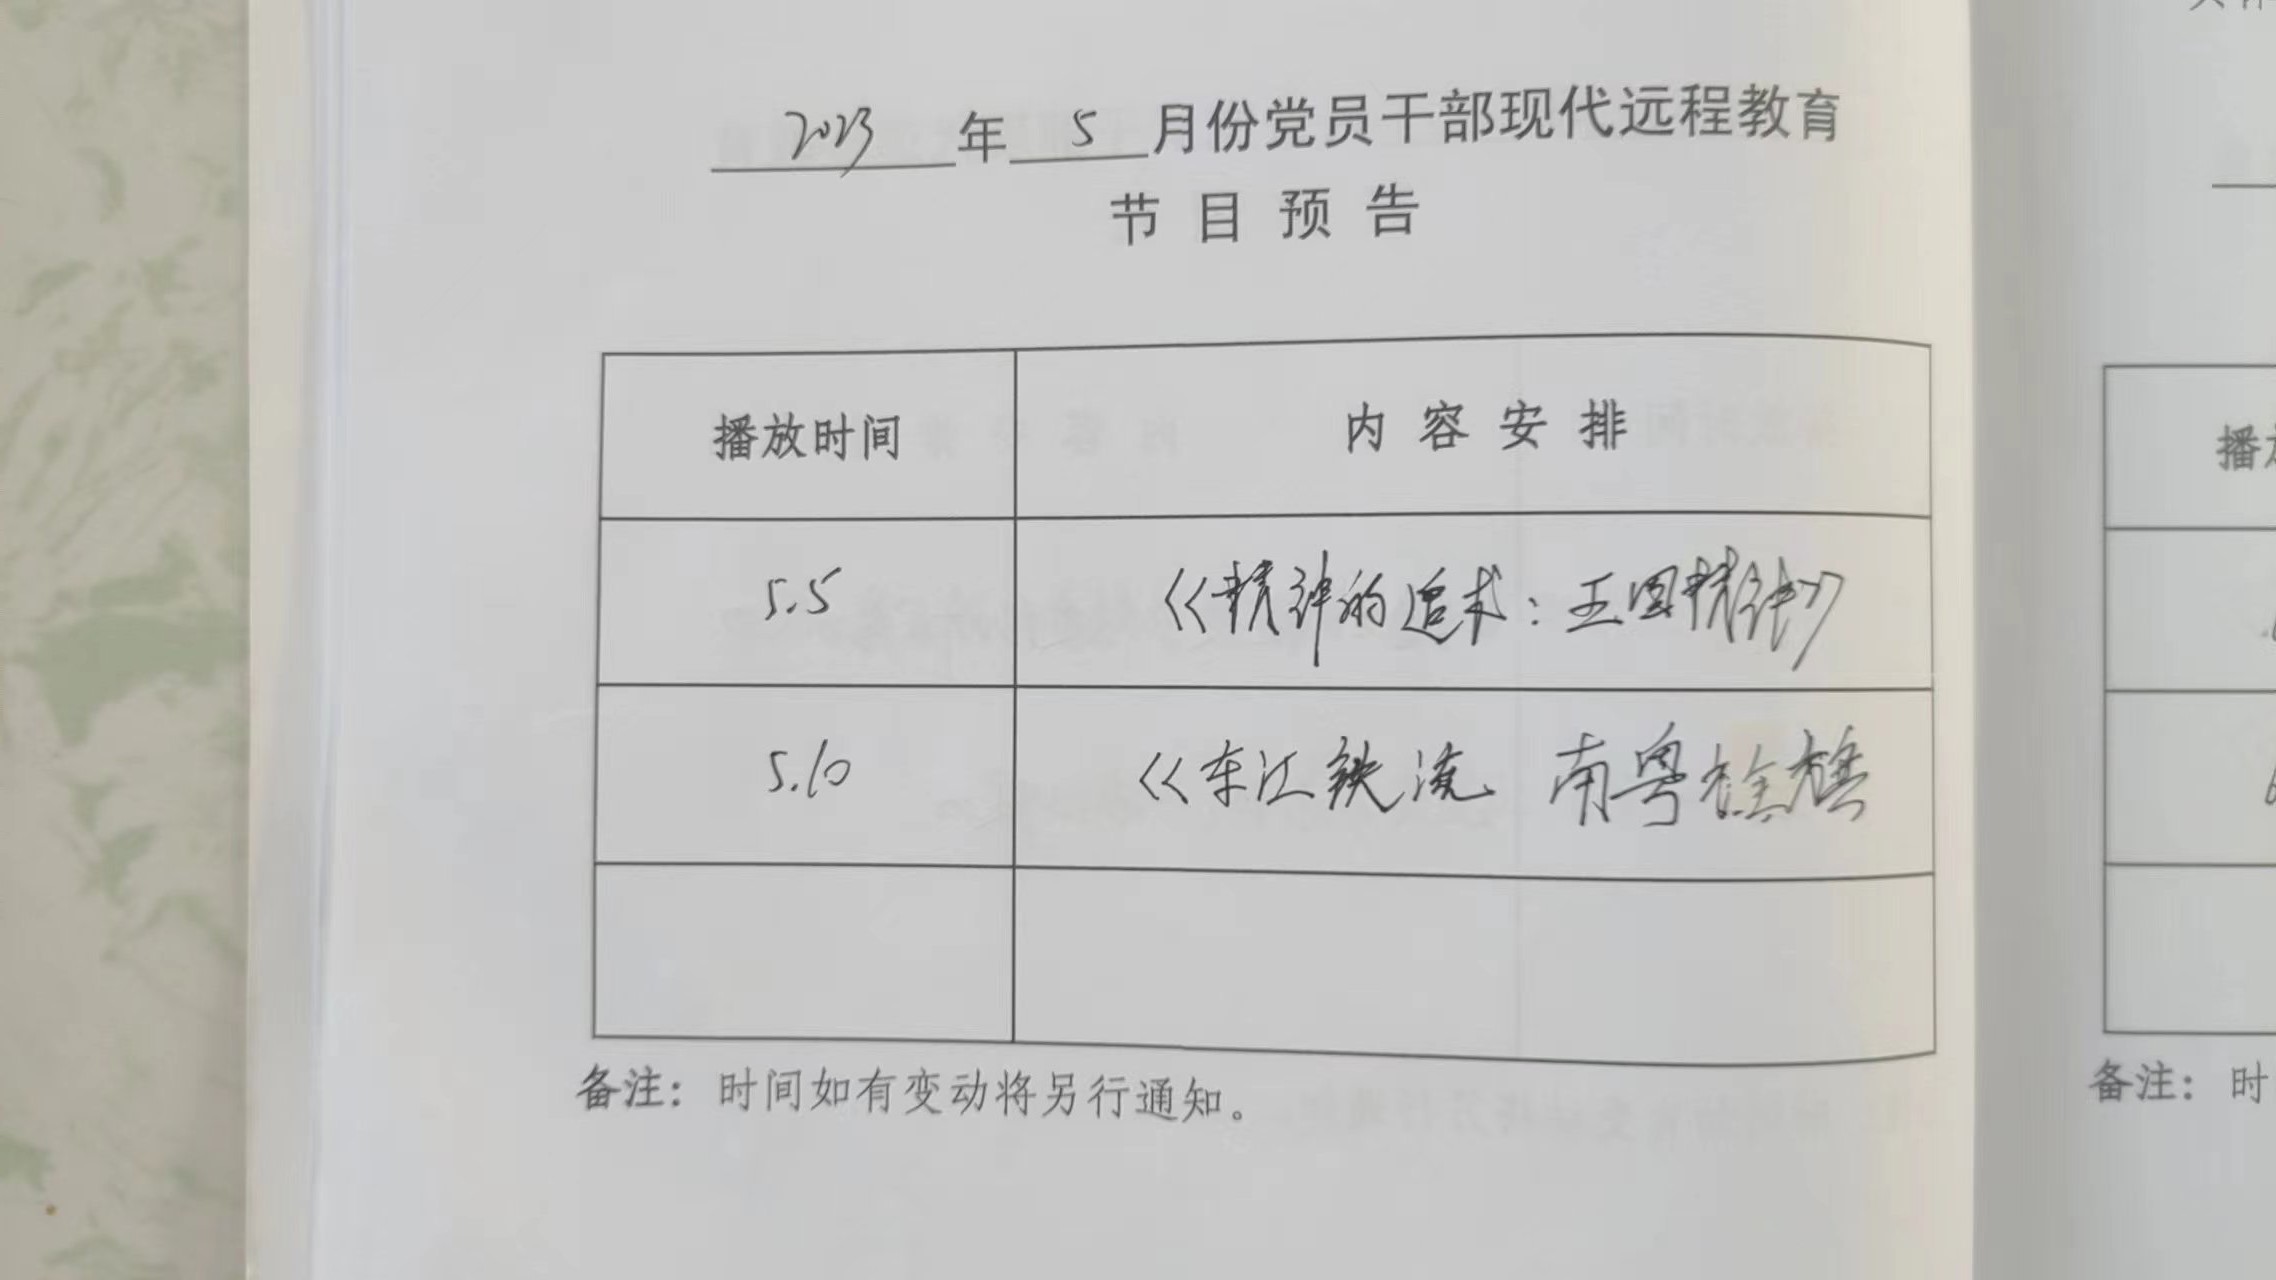 2023年5月份党员干部现代远程教育
节目预告
播放时间 内容安排
5.5 《精神的追求：王国精神》
5.10 《东江铁流 南粤旌旗
备注：时间如有变动将另行通知。
播
备注：时